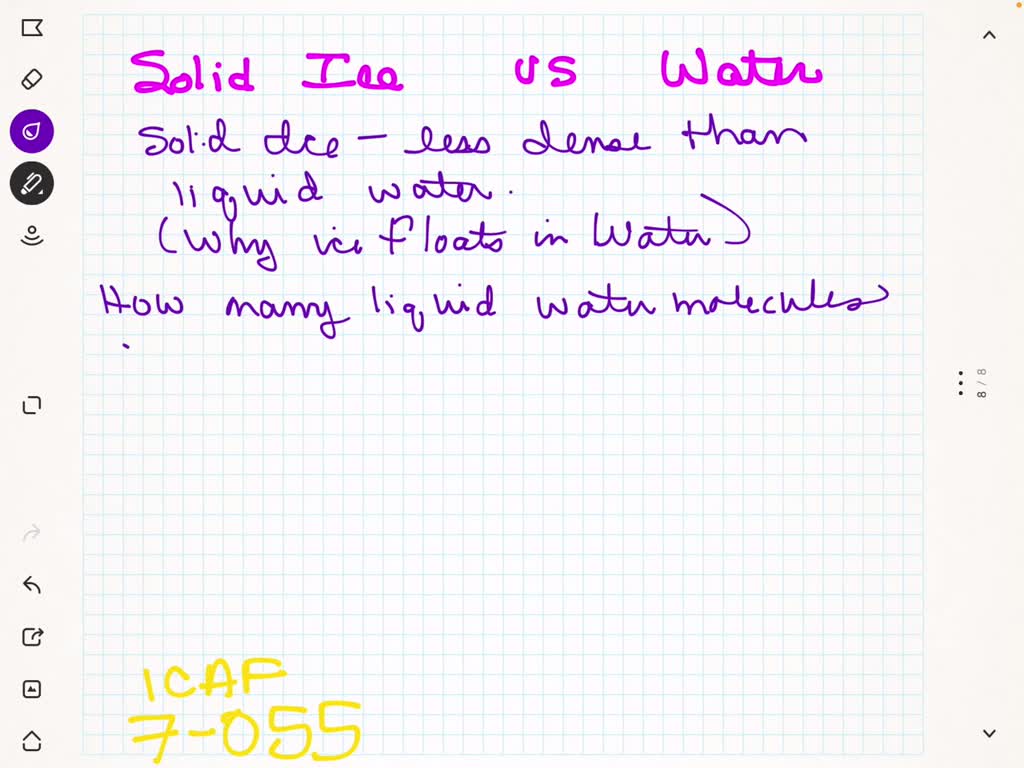 Solid Ice vs Water
Solid Ice - less dense than
liquid water.
(Why ice floats in Water)
How many liquid water molecules
ICAF
7-055
8 / 8